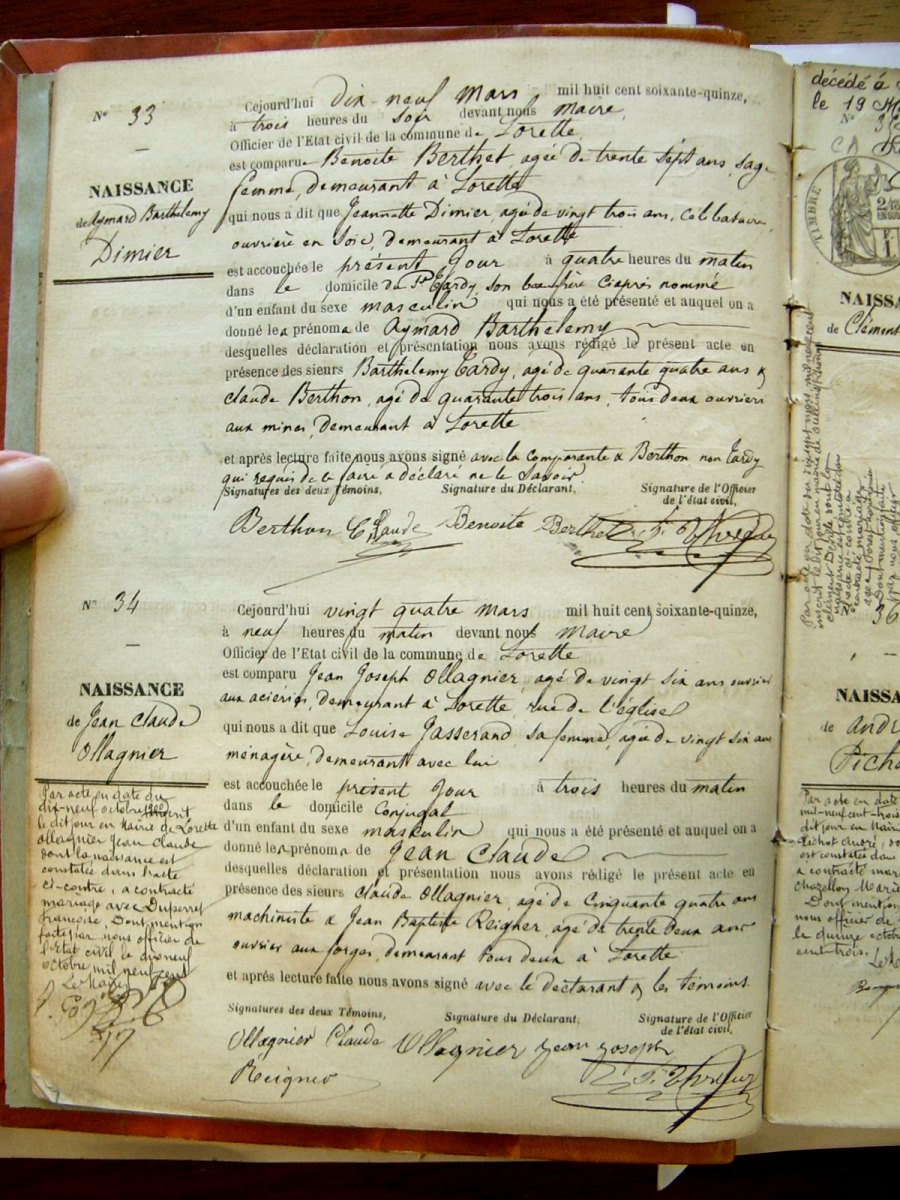 N° 33
—
NAISSANCE
de Aymard Barthelemy
Dimier
Cejourd'hui dix-neuf Mars mil huit cent soixante-quinze,
à trois heures du soir devant nous Maire,
Officier de l'Etat civil de la commune de Lorette,
est comparue Benoite Berthet, agée de trente sept ans, sage
femme, demeurant à Lorette
qui nous a dit que Jeannette Dimier, agée de vingt trois ans, Célibataire,
ouvrière en Soie, demeurant à Lorette
est accouchée le présent Jour à quatre heures du matin
dans le domicile du Sr Tardy son beau frère Ciaprès nommé
d'un enfant du sexe masculin qui nous a été présenté et auquel on a
donné les prénoms de Aymard Barthelemy
desquelles déclaration et présentation nous avons rédigé le présent acte en
présence des sieurs Barthelemy Tardy, agé de quarante quatre ans &
Claude Berthon, agé de quarante trois ans, tous deux ouvriers
aux mines, demeurant à Lorette
et après lecture faite nous avons signé avec la Comparante & Berthon non Tardy
qui requis de le faire a déclaré ne le Savoir
Signatures des deux Témoins, Signature du Déclarant, Signature de l'Officier
de l'état civil,
Berthon Claude Benoite Berthet
N° 34
—
NAISSANCE
de Jean Claude
Ollagnier
Cejourd'hui vingt quatre Mars mil huit cent soixante-quinze,
à neuf heures du matin devant nous Maire
Officier de l'Etat civil de la commune de Lorette
est comparu Jean Joseph Ollagnier, agé de vingt six ans ouvrier
aux aciéries, demeurant à Lorette rue de l'église
qui nous a dit que Louise Jasserand, sa femme, agée de vingt six ans
ménagère, demeurant avec lui
est accouchée le présent Jour à trois heures du matin
dans le domicile Conjugal
d'un enfant du sexe masculin qui nous a été présenté et auquel on a
donné les prénoms de Jean Claude
desquelles déclaration et présentation nous avons rédigé le présent acte en
présence des sieurs Claude Ollagnier, agé de Cinquante quatre ans
machiniste & Jean Baptiste Reigner, agé de trente deux ans
ouvrier aux forges, demeurant tous deux à Lorette
et après lecture faite nous avons signé avec le déclarant & les témoins.
Signatures des deux Témoins, Signature du Déclarant, Signature de l'Officier
de l'état civil,
Ollagnier Claude Ollagnier Jean Joseph
Reigner
Par acte en date du
dix-neuf octobre inscrit
le dit jour en Mairie de Lorette
Ollagnier Jean Claude
dont la naissance est
constatée dans l'acte
ci-contre, a contracté
mariage avec Duperret
françoise, Dont mention
faite par nous officier de
l'état civil le dix neuf
octobre mil neuf cent
Le Maire
décédé à
le 19
N°
TIMBRE
NAISSA
de Clément
36
—
NAISSA
de andr
Picho
Par acte en date
mil-neuf cent-trois
dit jour en Mairi
Pichot André, do
est constatée dans
a contracté mar
Chazellon Marie
Dont mention
nous officier de
le quinze octobre
cent trois.
Le M